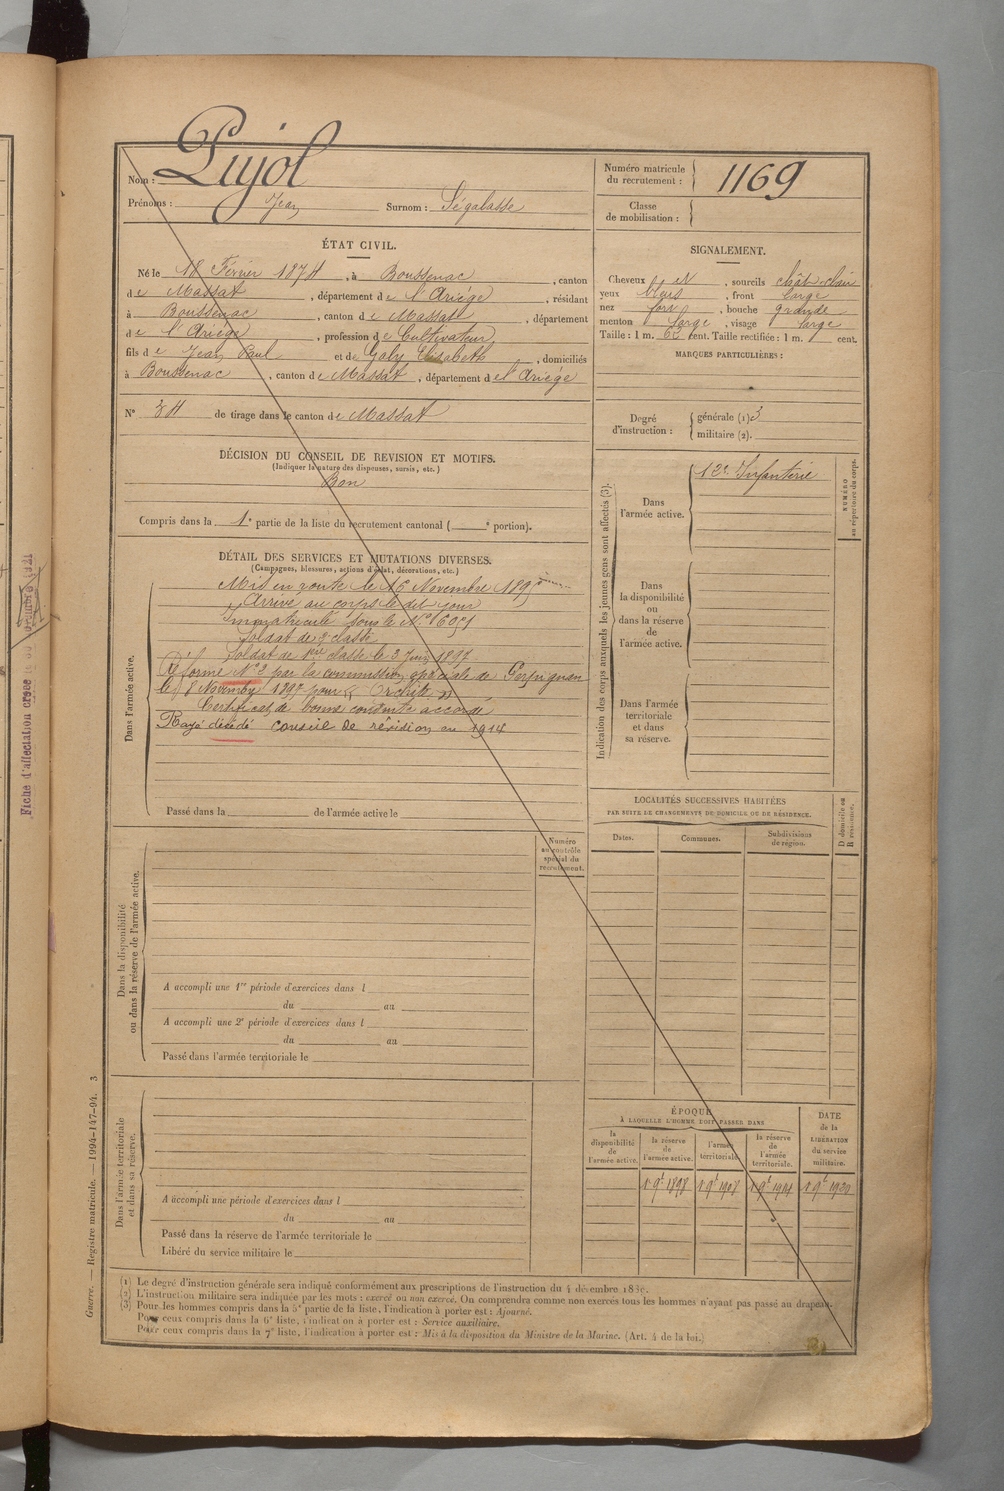 Pujol
Nom :
Prénoms : Jean Surnom : Ségalasse
Numéro matricule
du recrutement : 1169
Classe
de mobilisation :
ÉTAT CIVIL.
Né le 18 Février 1874, à Boussenac, canton
de Massat, département de l'Ariège, résidant
à Boussenac, canton de Massat, département
de l'Ariège, profession de Cultivateur
fils de Jean Paul et de Galy Elisabeth, domiciliés
à Boussenac, canton de Massat, département de l'Ariège
N° 34 de tirage dans le canton de Massat
DÉCISION DU CONSEIL DE REVISION ET MOTIFS.
(Indiquer la nature des dispenses, sursis, etc.)
Bon
Compris dans la 1e partie de la liste du recrutement cantonal ( e portion).
SIGNALEMENT.
Cheveux, sourcils chât. clair
yeux, front large
nez fort, bouche grande
menton large, visage large
Taille : 1 m. cent. Taille rectifiée : 1 m. cent.
MARQUES PARTICULIÈRES :
Degré
d'instruction :
générale (1) 3
militaire (2).
DÉTAIL DES SERVICES ET MUTATIONS DIVERSES.
(Campagnes, blessures, actions d'éclat, décorations, etc.)
Dans l'armée active.
Mis en route le 16 Novembre 1895
Arrivé au corps le dit jour
Immatriculé sous le N°
Soldat de 2e classe
Soldat de 1ère classe le 3 Juin 1897
Réformé N° 2 par la commission spéciale de Perpignan
le 8 Novembre 1897 pour "Orchite"
Certificat de bonne conduite accordé
Rayé décédé conseil de révision en 1914
Passé dans la de l'armée active le
Indication des corps auxquels les jeunes gens sont affectés (3).
NUMÉRO
au répertoire du corps.
Dans
l'armée active.
12e Infanterie
Dans
la disponibilité
ou
dans la réserve
de
l'armée active.
Dans l'armée
territoriale
et dans
sa réserve.
LOCALITÉS SUCCESSIVES HABITÉES
PAR SUITE DE CHANGEMENTS DE DOMICILE OU DE RÉSIDENCE.
Dates.
Communes.
Subdivisions
de région.
D domicile ou
R résidence.
Numéro
au contrôle
spécial du
recrutement.
Dans la disponibilité
ou dans la réserve de l'armée active.
A accompli une 1re période d'exercices dans l
du au
A accompli une 2e période d'exercices dans l
du au
Passé dans l'armée territoriale le
Dans l'armée territoriale
et dans sa réserve.
A accompli une période d'exercices dans l
du au
Passé dans la réserve de l'armée territoriale le
Libéré du service militaire le
ÉPOQUE
À LAQUELLE L'HOMME DOIT PASSER DANS
la
disponibilité
de
l'armée active.
la réserve
de
l'armée active.
l'armée
territoriale.
la réserve
de
l'armée
territoriale.
DATE
de la
LIBÉRATION
du service
militaire.
1 9e 1898
1 9e 1908
1 9e 1914
1 9e 1920
(1) Le degré d'instruction générale sera indiqué conformément aux prescriptions de l'instruction du 4 décembre
(2) L'instruction militaire sera indiquée par les mots : exercé ou non exercé. On comprendra comme non exercés tous les hommes n'ayant pas passé au drapeau.
(3) Pour les hommes compris dans la 5e partie de la liste, l'indication à porter est : Ajourné.
Pour ceux compris dans la 6e liste, l'indication à porter est : Service auxiliaire.
Pour ceux compris dans la 7e liste, l'indication à porter est : Mis à la disposition du Ministre de la Marine. (Art. 4 de la loi.)
Guerre. — Registre matricule. — 1994-147-94. 3
Fiche d'affectation créée le